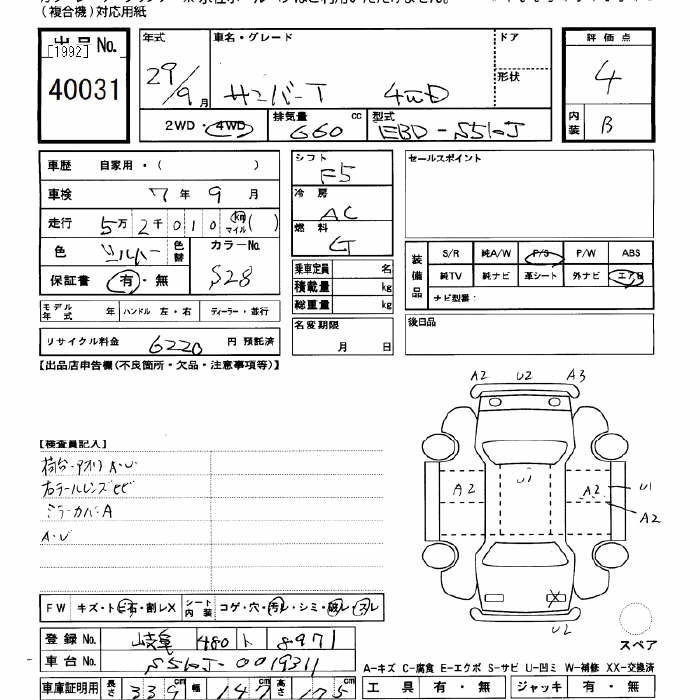 (複合機)対応用紙
出品 No.
[1992]
40031
年式 車名・グレード ドア
29/9月 サンバーT 4WD 形状
2WD・4WD 排気量 660 cc 型式 EBD-S510J
評価点
4
内装 B
車歴 自家用・( )
車検 7年 9月
走行 5万 2千 0 1 0 km マイル( )
色 シルバー 色替 カラーNo. S28
保証書 有・無
モデル年式 年 ハンドル 左・右 ディーラー・並行
リサイクル料金 6220 円 預託済
シフト F5
冷房 AC
燃料 G
乗車定員 名
積載量 kg
総重量 kg
名変期限
月 日
セールスポイント
装備品 S/R 純A/W P/S P/W ABS
純TV 純ナビ 革シート 外ナビ エアB
ナビ型番:
後日品
【出品店申告欄(不良箇所・欠品・注意事項等)】
【検査員記入】
荷台・アオリ A・U
右テールレンズヒビ
ミラーカバーA
A・U
A2 U2 A3
A2 U1 A2 U1
A2
X
U2
スペア
FW キズ・トビ石・割レX シート内装 コゲ・穴・汚レ・シミ・破レ・スレ
登録 No. 岐阜 480 ト 8971
車台 No. S510J-0019311
車庫証明用 長さ 339 cm 幅 147 cm 高さ 175 cm
A-キズ C-腐食 E-エクボ S-サビ U-凹ミ W-補修 XX-交換済
工具 有・無 ジャッキ 有・無